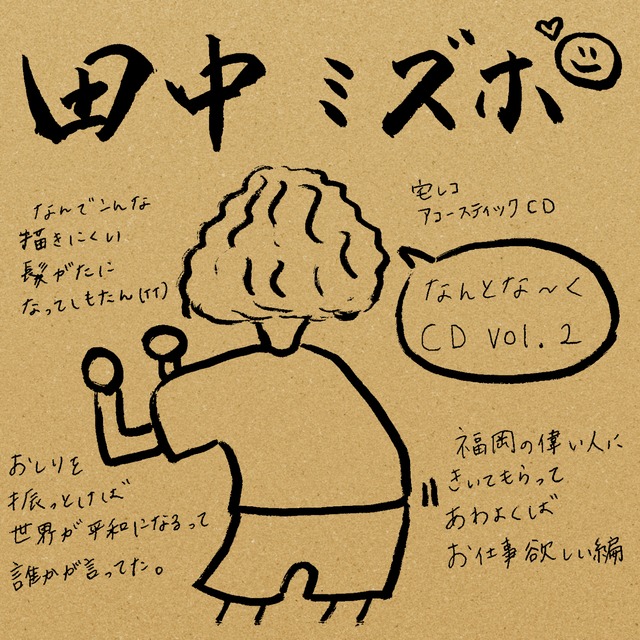 田中ミズホ
なんでこんな
描きにくい
髪がたに
なってしもたん(竹)
宅レコ
アコースティックCD
なんとな〜く
CD vol.2
おしりを
振っとけば
世界が平和になるって
誰かが言ってた。
福岡の偉い人に
きいてもらって
あわよくば
お仕事欲しい編